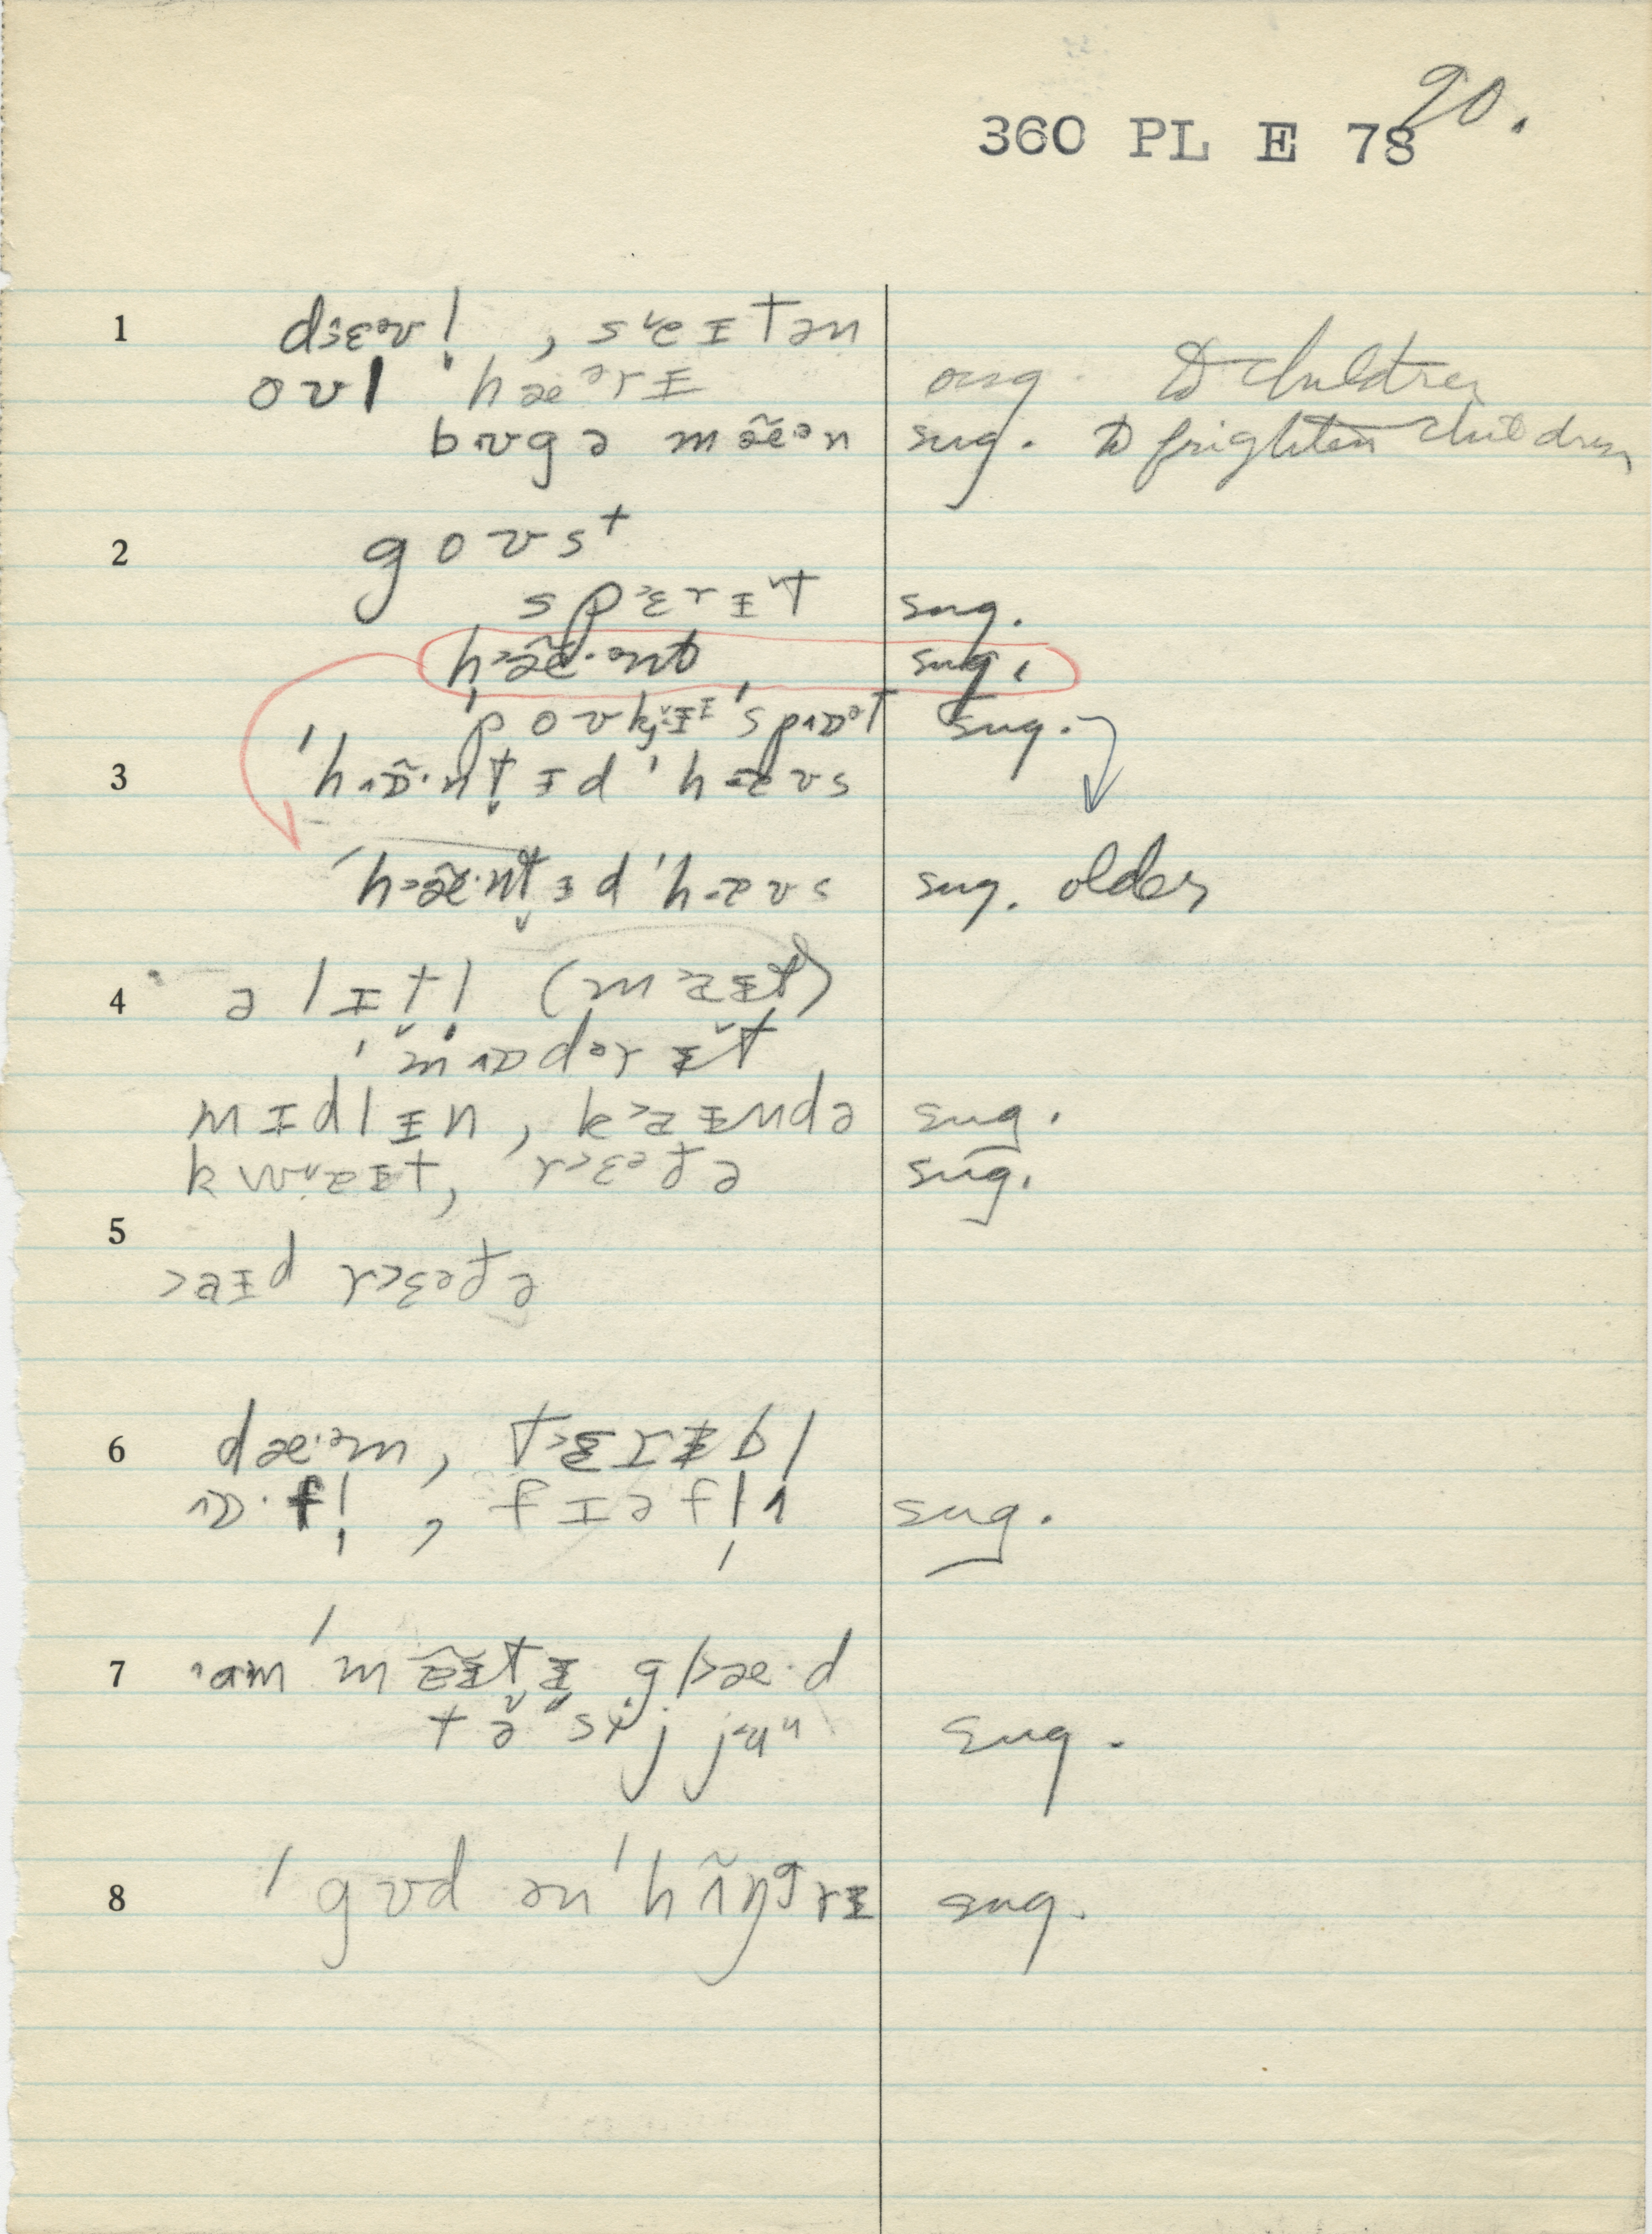 90.
360 PL E 78
1 dɛəvl̩, seɪtən
oʊl ˈhæərɪ sug. to children
bʊgə mæ̃ən sug. to frighten children
2 goʊst
spɛrɪt sug.
hæ̃·ənt sug.
ˈpoʊkɪˈspɒət sug.
3 ˈhɒ̃·nt̬ɪd ˈhæʊs
ˈhæ̃·nt̬ɪd ˈhæʊs sug. older
4 ə lɪt̬l̩ (maɪt)
ˈmɒdərɪt
mɪdlɪn, kaɪndə sug.
kwaɪt, rɛəðə sug.
5
aɪd rɛəðə
6 dæ·əm, tɛrɪbl
ɒ·fl̩, fɪəfl̩ɪ sug.
7 am ˈmãɪt̬ɪ glæ·d
tə sij juu sug.
8 ˈgʊd ən ˈhʌ̃ŋgrɪ sug.